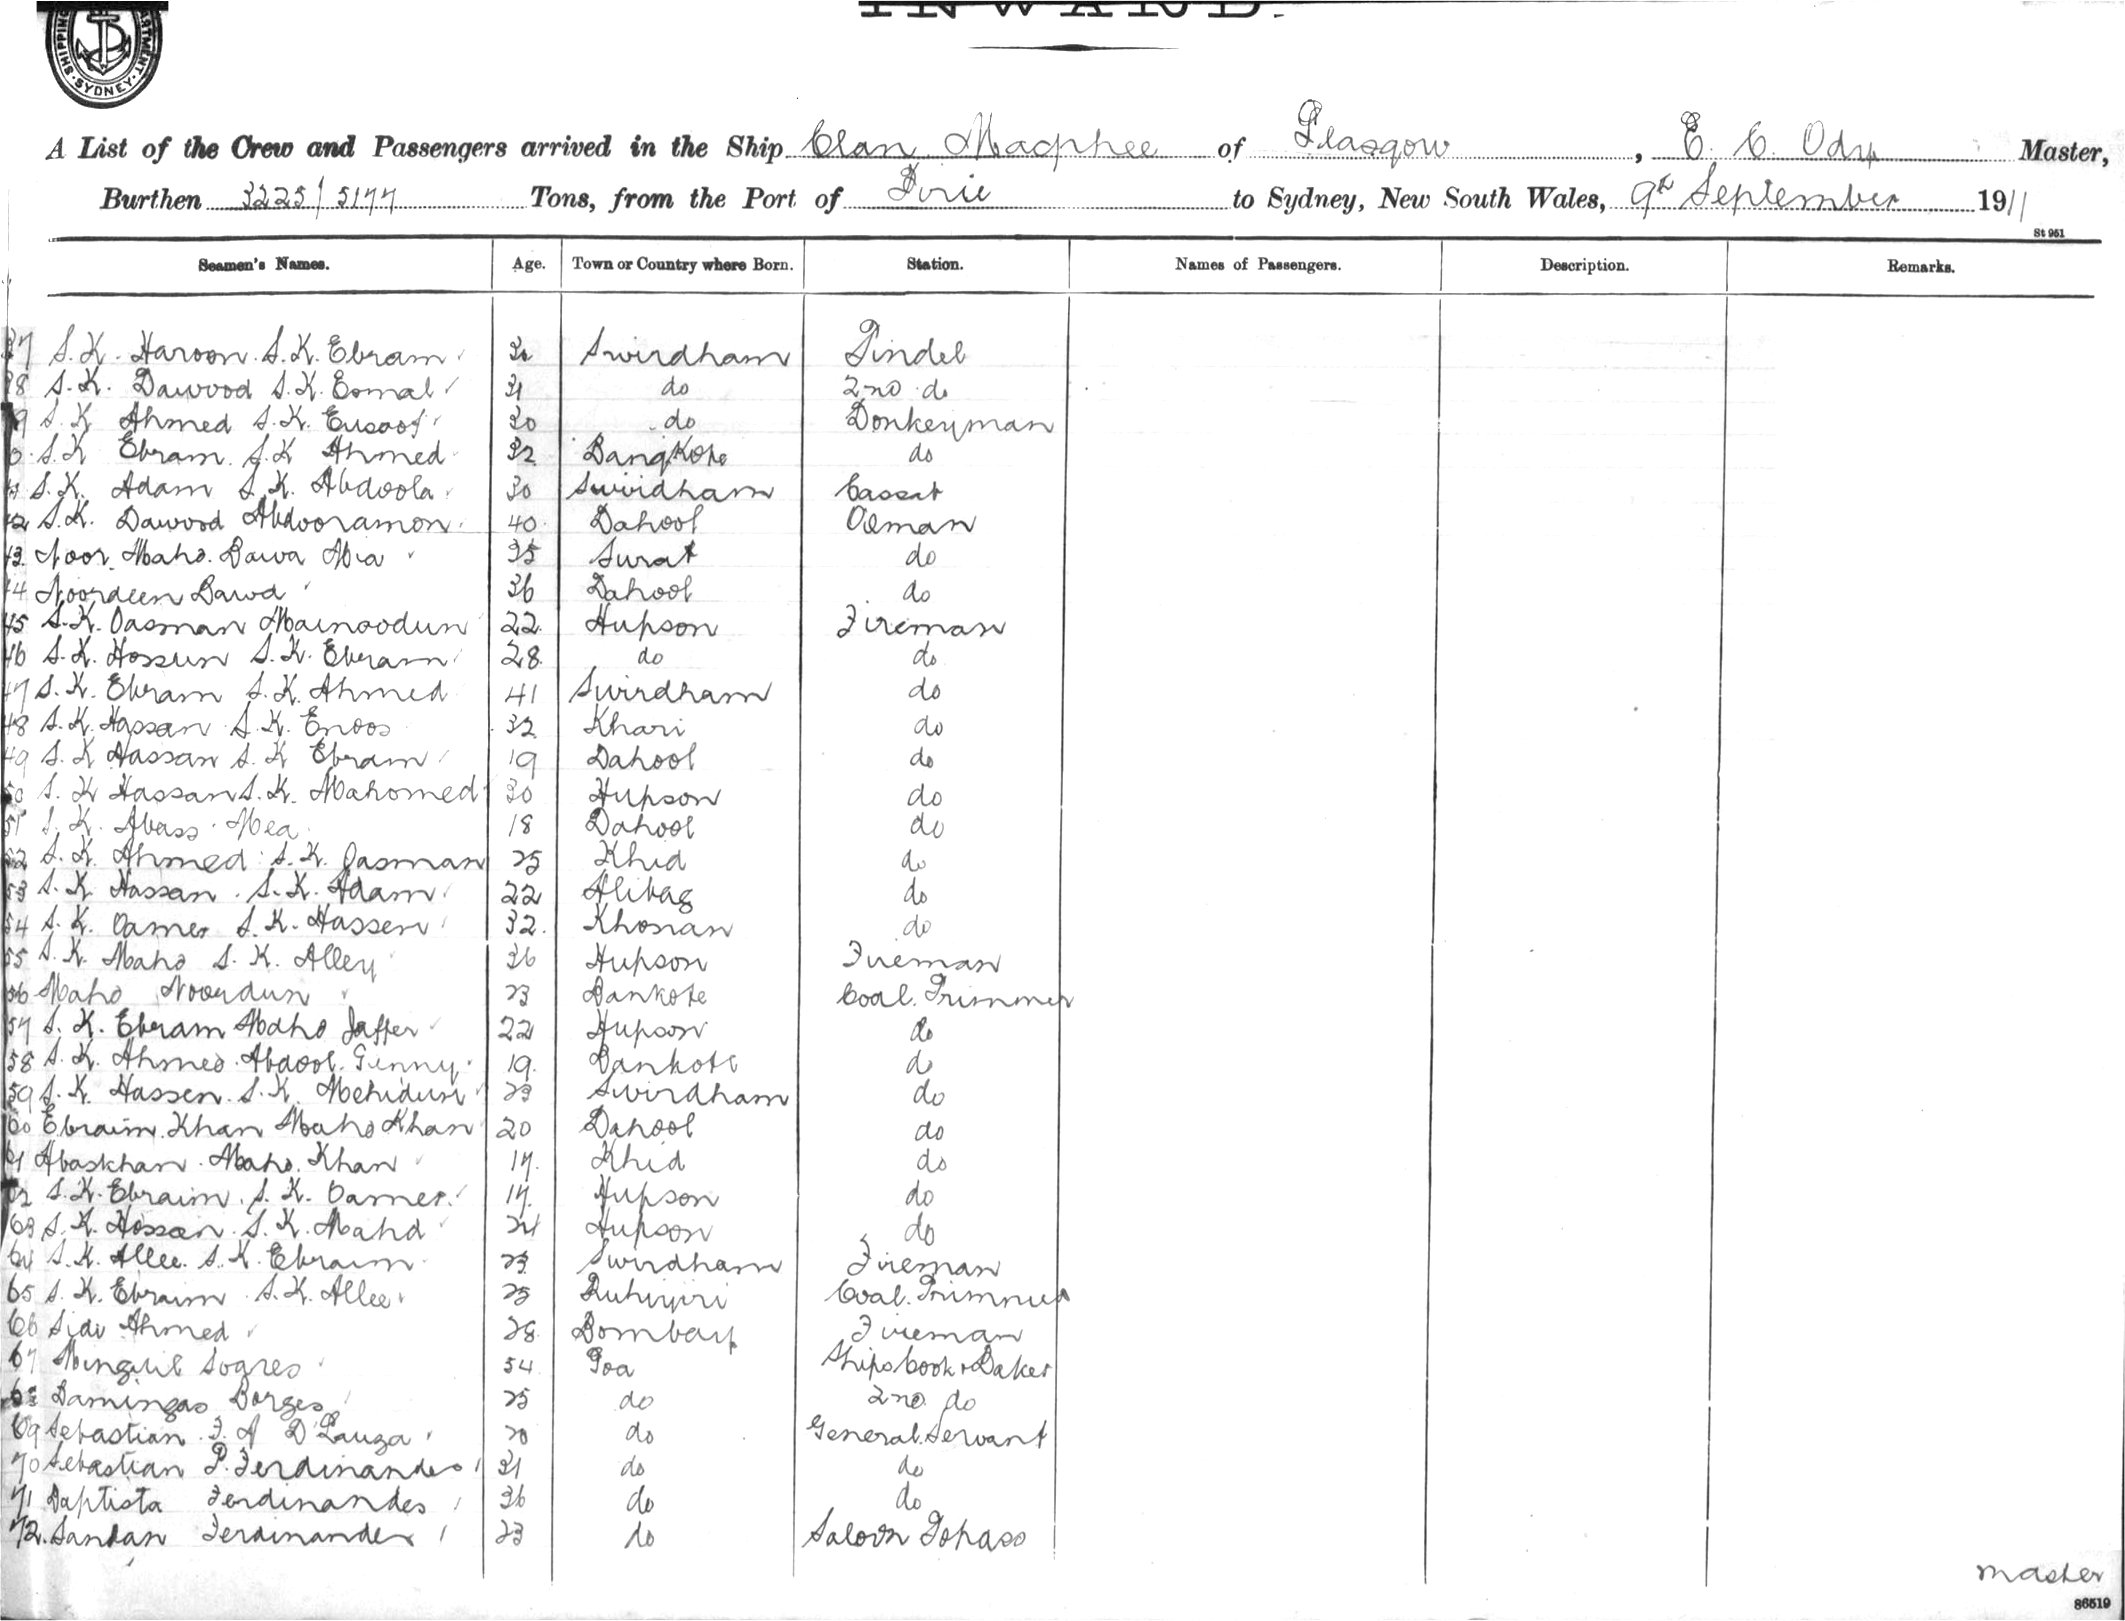 INWARD.
SHIPPING DEPARTMENT SYDNEY
A List of the Crew and Passengers arrived in the Ship Clan Macphee of Glasgow, E. C. Ody Master,
Burthen 3225/5177 Tons, from the Port of Pirie to Sydney, New South Wales, 9th September 1911
St 961
Seamen's Names. Age. Town or Country where Born. Station. Names of Passengers. Description. Remarks.
37 S. K. Haroon S. K. Ebram Swirdham Tindel
38 S. K. Dawood S. K. Esmal 31 do 2nd do
39 S. K. Ahmed S. K. Eusoof 30 do Donkeyman
S. K. Ebram S. K. Ahmed 32 Bangkote do
41 S. K. Adam S. K. Abdoola 30 Swirdham Cassab
42 S. K. Dawood Abdooramon 40 Dahool Oilman
43 Noor Maho. Bawa Mia 35 Surat do
44 Noordeen Bawd 36 Dahool do
45 S. K. Oasman Mainoodun 22 Hupson Fireman
46 S. K. Hossun S. K. Ebram 28 do do
47 S. K. Ebram S. K. Ahmed 41 Swirdham do
48 S. K. Hassan S. K. Enoos 32 Khari do
49 S. K. Hassan S. K. Ebram 19 Dahool do
50 S. K. Hassan S. K. Mahomed 30 Hupson do
51 S. K. Abass Mea 18 Dahool do
52 S. K. Ahmed S. K. Oasman 25 Khid do
53 S. K. Hassan S. K. Adam 22 Alibag do
54 S. K. Oamer S. K. Hassen 32 Khonan do
55 S. K. Maho S. K. Alley 36 Hupson Fireman
56 Maho Noordun 23 Bankote Coal Trimmer
57 S. K. Ebram Maho Jaffer 22 Hupson do
58 S. K. Ahmed Abdool Gunny 19 Bankote do
59 S. K. Hassen S. K. Mehidun 23 Swirdham do
60 Ebraim Khan Maho Khan 20 Dahool do
61 Abaskhan Maho Khan 17 Khid do
62 S. K. Ebraim S. K. Oamer 17 Hupson do
63 S. K. Hossan S. K. Mahd 24 Hupson do
64 S. K. Allee S. K. Ebraim 23 Swirdham Fireman
65 S. K. Ebraim S. K. Allee 25 Coal Trimmer
66 Sidi Ahmed 28 Bombay Fireman
67 Minguel Sogres 54 Goa Ships Cook & Baker
68 Damingas Borges 25 do 2nd do
69 Sebastian F. A D'Lauza 20 do General Servant
70 Sebastian P. Ferdinandes 31 do do
71 Baptista Ferdinandes 36 do do
72 Sandan Ferdinandes 23 do Saloon Topass
master
86519